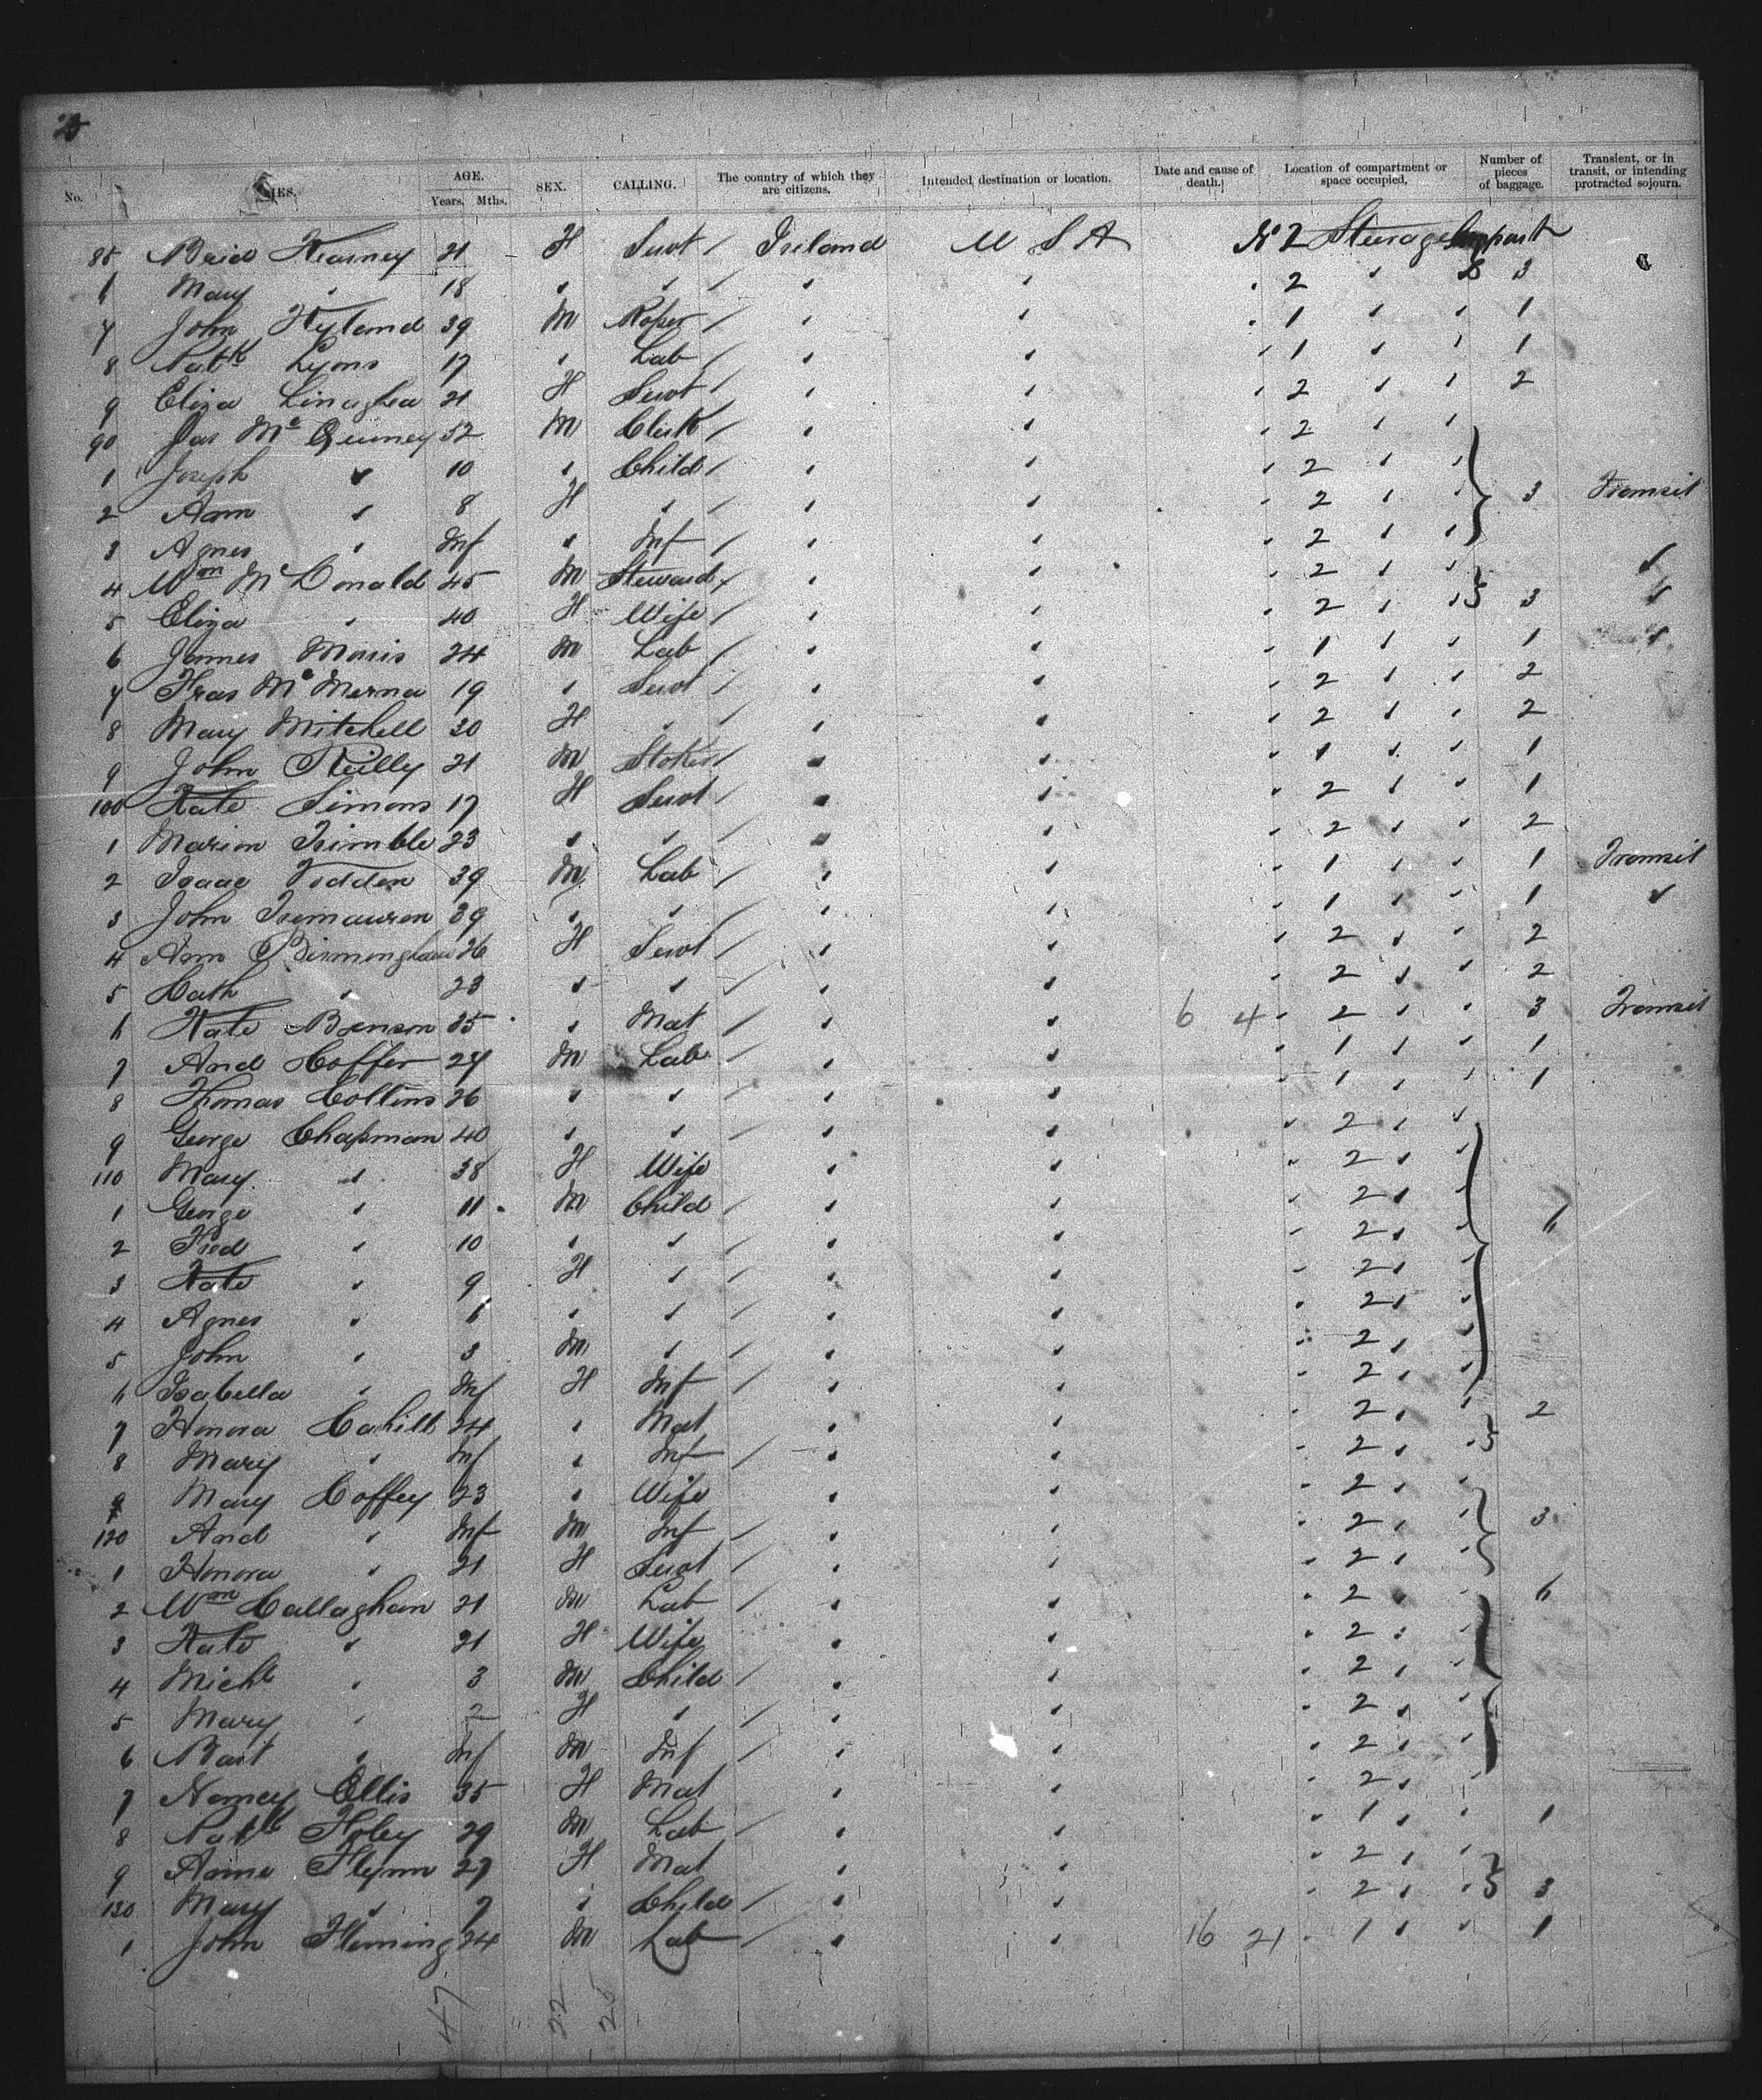 No. NAMES. AGE. Years. Mths. SEX. CALLING. The country of which they are citizens. Intended destination or location. Date and cause of death. Location of compartment or space occupied. Number of pieces of baggage. Transient, or in transit, or intending protracted sojourn.
85 Kearney 21 F Servt Ireland U S A No 2 Steerage
6 Mary " 18 " " " " " 2 " 3
7 John Hyland 39 M " " " 1 " " 1
8 Patk Lyons 17 " Lab " " " 1 " " 1
9 Eliza 21 F Servt " " " 2 " " 2
90 Jas Mc 52 M Clerk " " " 2 " "
1 Joseph " 10 " Child " " " 2 " "
2 Ann " 8 F " " " " 2 " " 3 Transit
3 Agnes " Inf " Inf " " " 2 " "
4 Wm McDonald 45 M Steward " " " 2 " " "
5 Eliza " 40 F Wife " " " 2 " " 3 "
6 James Morris 24 M Lab " " " 1 " " 1 "
7 Fras Mc 19 " Servt " " " 2 " " 2
8 Mary Mitchell 30 F " " " " 2 " " 2
9 John Reilly 21 M Stoker " " " 1 " " 1
100 Kate Simons 17 F Servt " " " 2 " " 1
1 Marion Trimble 23 " " " " " 2 " " 2
2 Isaac 39 M Lab " " " 1 " " 1 Transit
3 John 39 " " " " " 1 " " 1 "
4 Ann Birmingham 26 F Servt " " " 2 " " 2
5 Cath " 23 " " " " " 2 " " 2
6 Kate Benson 35 " Mat " " 6 4 " 2 " " 3 Transit
7 And Coffer 27 M Lab " " " 1 " " 1
8 Thomas Collins 26 " " " " " 1 " " 1
9 George Chapman 40 " " " " " 2 " "
110 Mary " 38 F Wife " " " 2 " "
1 George " 11 M Child " " " 2 " "
2 Fred " 10 " " " " " 2 " " 6
3 Kate " 9 F " " " " 2 "
4 Agnes " 6 " " " " " 2 " "
5 John " 3 M " " " " 2 " "
6 Isabella " Inf F Inf " " " 2 " "
7 Honora Cahill 24 " Mat " " " 2 " " 2
8 Mary " Inf " Inf " " " 2 " "
9 Mary Coffey 23 " Wife " " " 2 " "
120 And " Inf M Inf " " " 2 " " 3
1 Honora " 21 F Servt " " " 2 " "
2 Wm Callaghan 21 M Lab " " " 2 " 6
3 Kate " 21 F Wife " " " 2 " "
4 Michl " 3 M Child " " " 2 " "
5 Mary " 2 F " " " " 2 " "
6 Bart " Inf M Inf " " " 2 " "
7 Nancy Ellis 35 F Mat " " " 2 " "
8 Patk Foley 29 M Lab " " " 1 " " 1
9 Anne Flynn 27 F Mat " " " 2 " "
130 Mary " 7 " Child " " " 2 " " 3
1 John Fleming 24 M Lab " " 16 21 " 1 " " 1
47 22 25